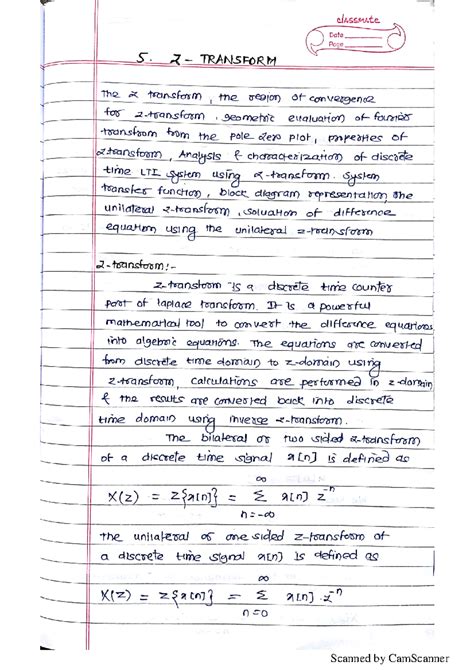 classmate
Date
Page
5. Z - TRANSFORM
The Z transform, the region of convergence
for z-transform, geometric evaluation of fourier
transform from the pole zero plot, properties of
z-transform, Analysis & characterization of discrete
time LTI system using z-transform. System
transfer function, block diagram representation, the
unilateral z-transform, soluation of difference
equation using the unilateral z-transform
z-transform:-
z-transform is a discrete time counter
part of laplace transform. It is a powerful
mathematical tool to convert the difference equations
into algebric equations. The equations are converted
from discrete time domain to z-domain using
z-transform, calculations are performed in z-domain
& the results are converted back into discrete
time domain using inverse z-transform.
The bilateral or two sided z-transform
of a discrete time signal x[n] is defined as
X(z) = Z{x[n]} = ∞Σn=-∞ x[n] z⁻ⁿ
the unilateral or one sided z-transform of
a discrete time signal x[n] is defined as
X(z) = Z{x[n]} = ∞Σn=0 x[n] . z⁻ⁿ
Scanned by CamScanner